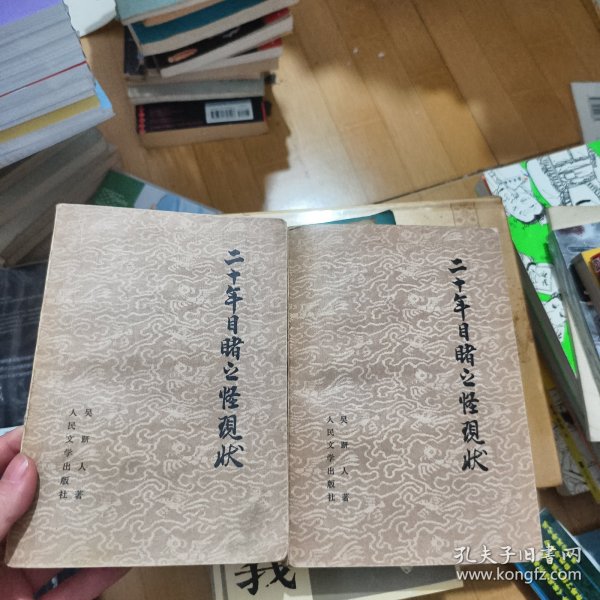 二十年目睹之怪现状
吴趼人著
人民文学出版社
二十年目睹之怪现状
吴趼人著
人民文学出版社
我
孔夫子旧书网
www.kongfz.com